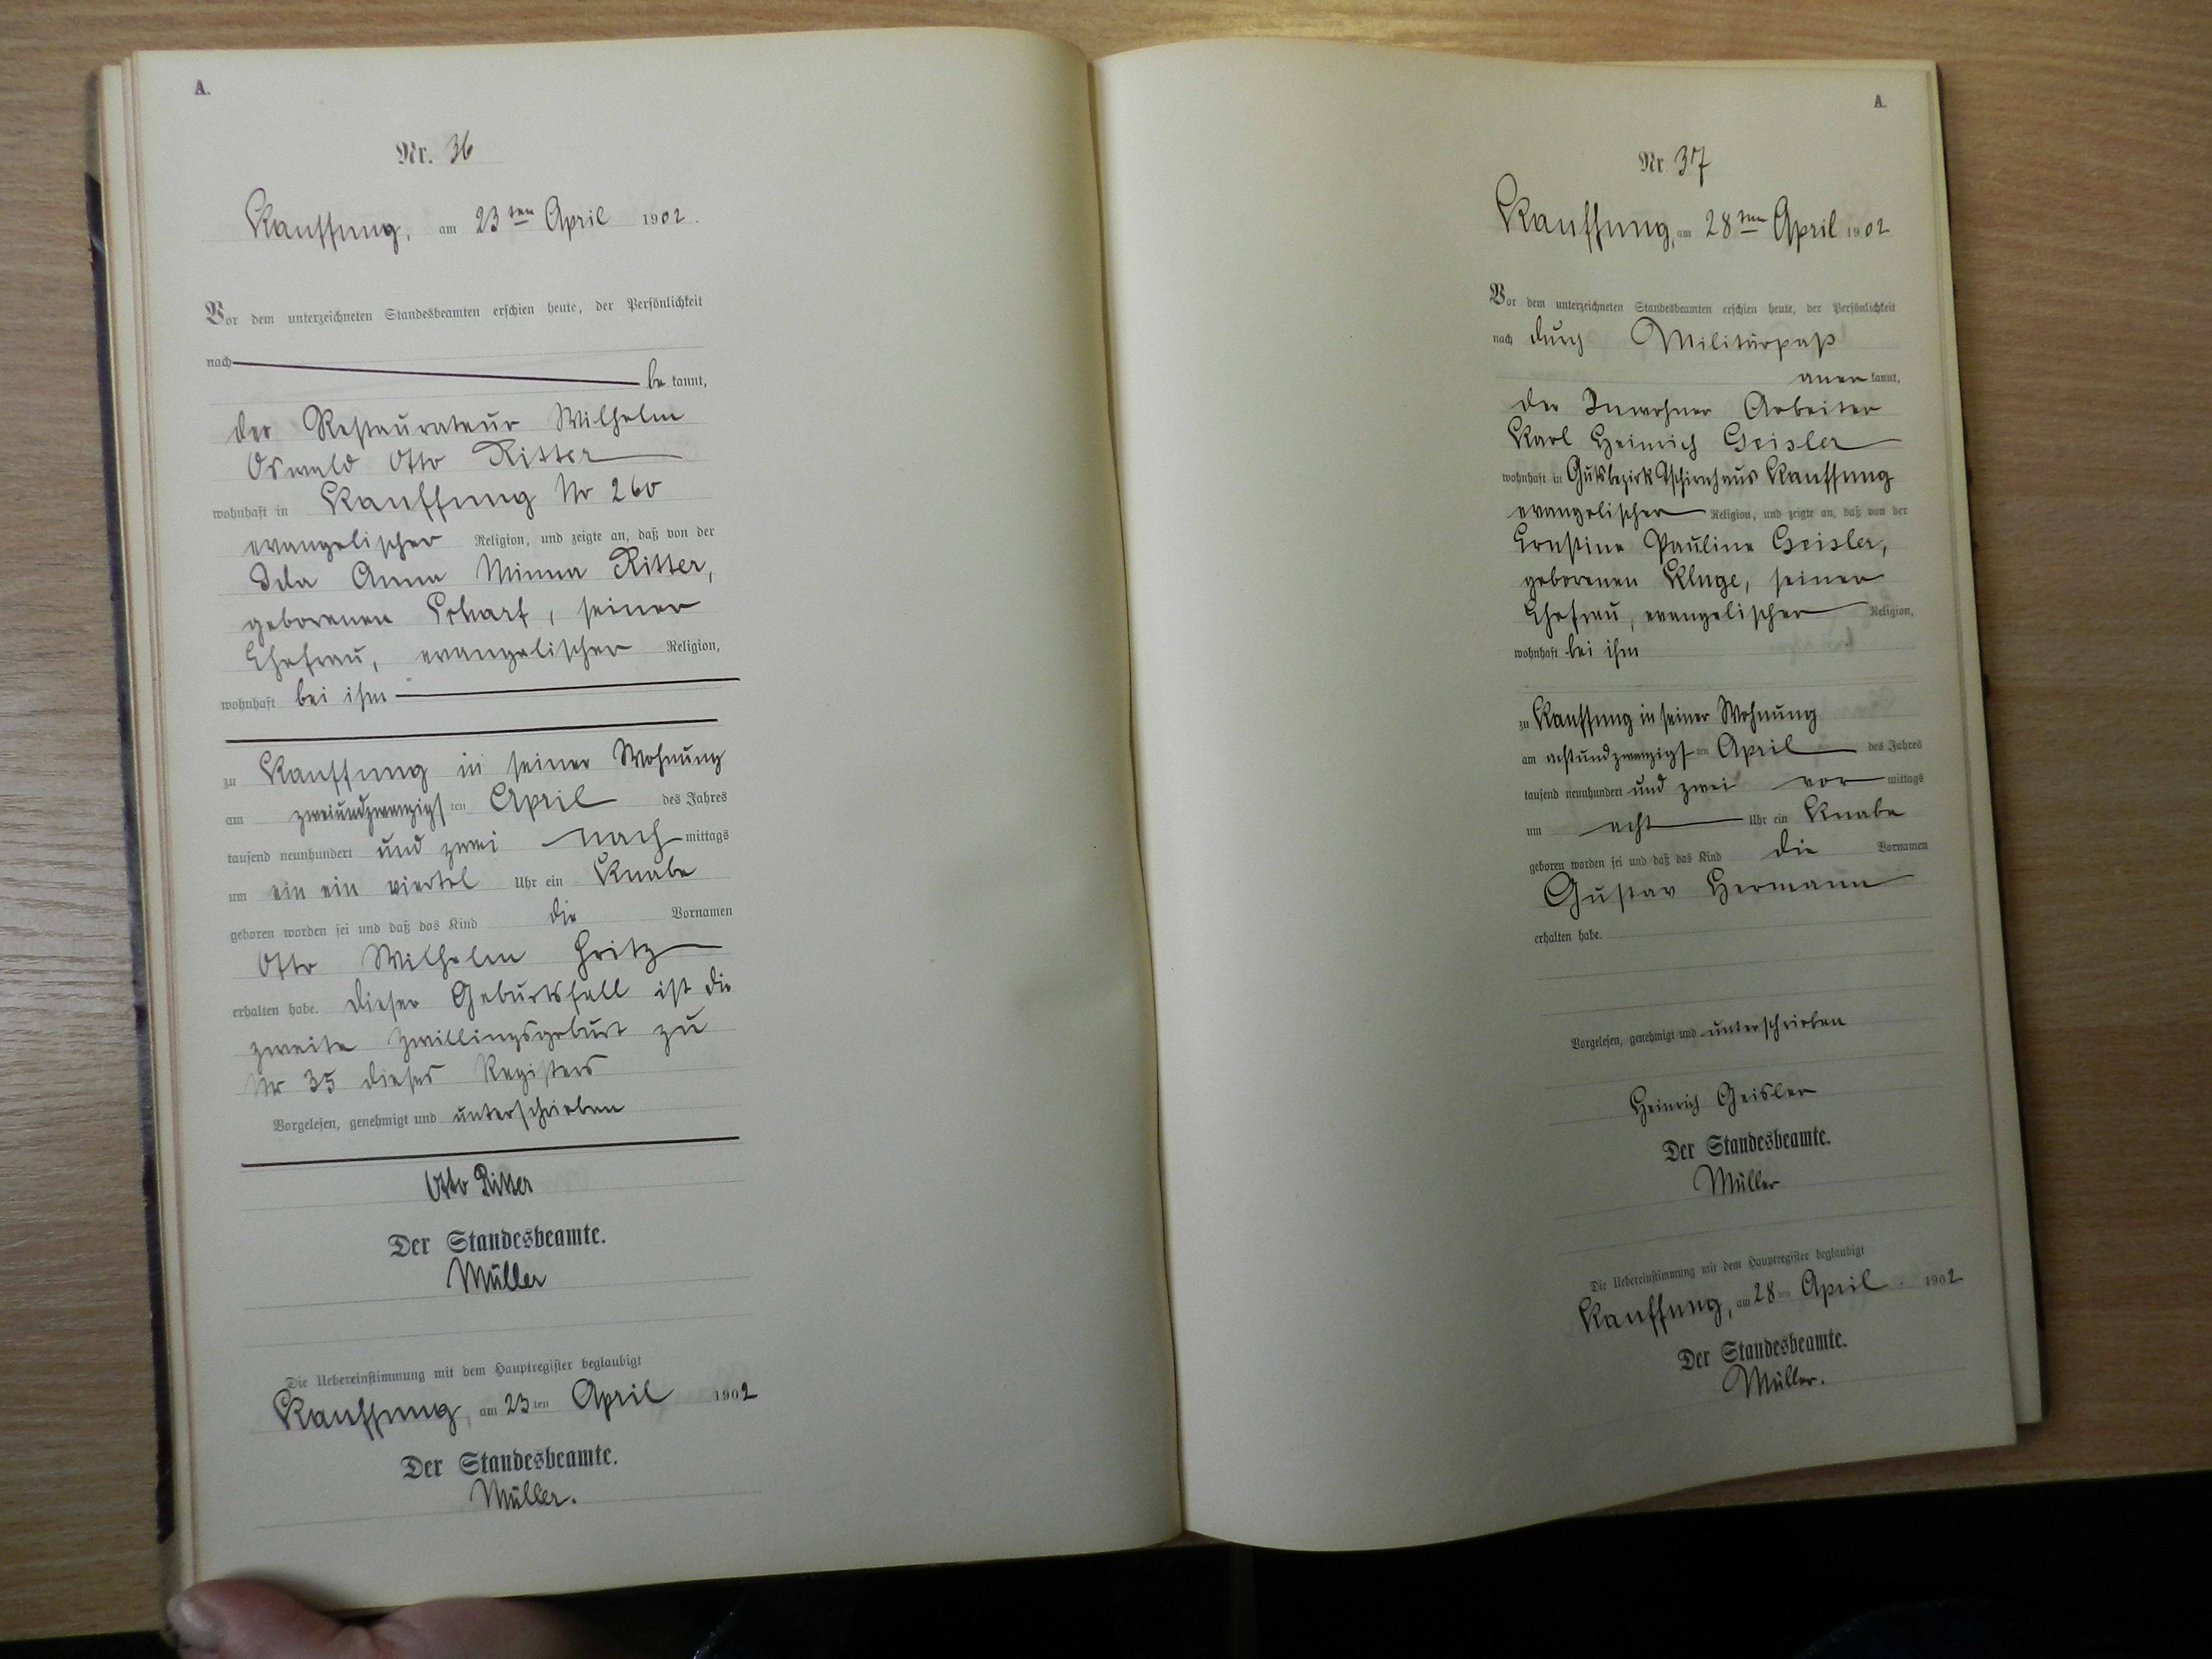 A.
Nr. 36
Kauffung, am 23ten April 1902.
Vor dem unterzeichneten Standesbeamten erschien heute, der Persönlichkeit
nach
be kannt,
der Restaurateur Wilhelm
Oswald Otto Ritter
wohnhaft in Kauffung Nr 260
evangelischer Religion, und zeigte an, daß von der
Ida Anna Minna Ritter,
geborenen Scharf, seiner
Ehefrau, evangelischer Religion,
wohnhaft bei ihm
zu Kauffung in seiner Wohnung
am zweiundzwanzigsten April des Jahres
tausend neunhundert und zwei nach mittags
um ein ein viertel Uhr ein Knabe
geboren worden sei und daß das Kind die Vornamen
Otto Wilhelm Fritz
erhalten habe. Dieser Geburtsfall ist die
zweite Zwillingsgeburt zu
Nr 35 dieses Registers
Vorgelesen, genehmigt und unterschrieben
Otto Ritter
Der Standesbeamte.
Müller
Die Uebereinstimmung mit dem Hauptregister beglaubigt
Kauffung, am 23ten April 1902
Der Standesbeamte.
Müller.
A.
Nr. 37
Kauffung, am 28ten April 1902
Vor dem unterzeichneten Standesbeamten erschien heute, der Persönlichkeit
nach durch Militärpaß
aner kannt,
der Inwohner Arbeiter
Karl Heinrich Geisler
wohnhaft in Gutsbezirk Tschirnhaus Kauffung
evangelischer Religion, und zeigte an, daß von der
Ernstine Pauline Geisler,
geborenen Kluge, seiner
Ehefrau, evangelischer Religion,
wohnhaft bei ihm
zu Kauffung in seiner Wohnung
am achtundzwanzigsten April des Jahres
tausend neunhundert und zwei vor mittags
um acht Uhr ein Knabe
geboren worden sei und daß das Kind die Vornamen
Gustav Hermann
erhalten habe.
Vorgelesen, genehmigt und unterschrieben
Heinrich Geisler
Der Standesbeamte.
Müller
Die Uebereinstimmung mit dem Hauptregister beglaubigt
Kauffung, am 28ten April 1902
Der Standesbeamte.
Müller.